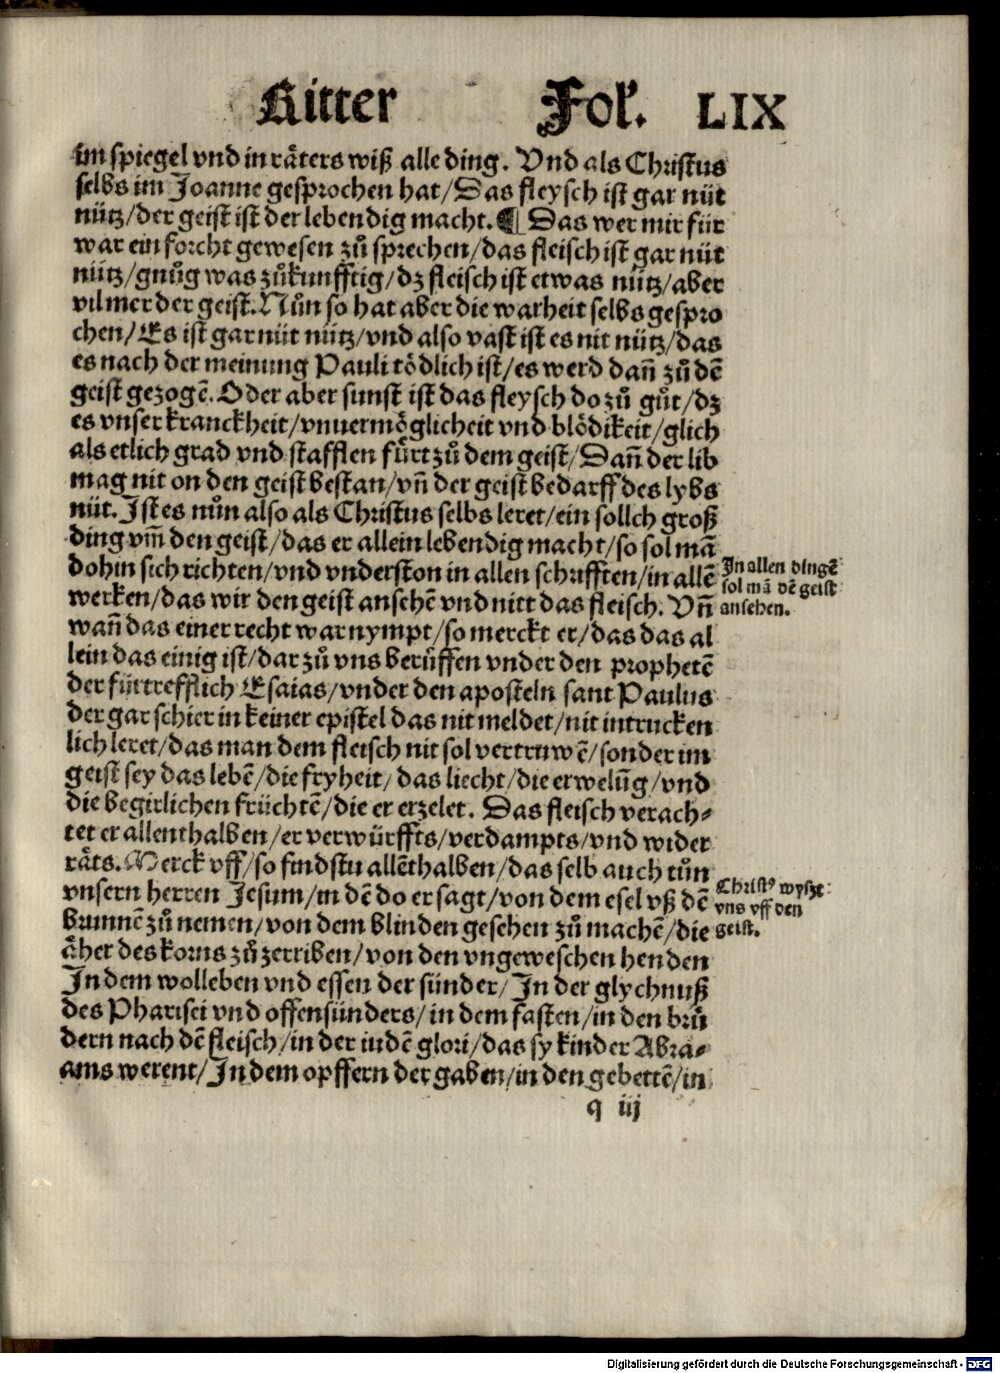 Ritter Fol. LIX
im spiegel vnd in räters wiß alle ding. Vnd als Christus
selbs im Joanne gesprochen hat/Das fleysch ist gar nüt
nütz/der geist ist der lebendig macht. ¶ Das wer mir für
war ein forcht gewesen zů sprechen/das fleisch ist gar nüt
nütz/gnůg was zůkunfftig/dz fleisch ist etwas nütz/aber
vil mer der geist. Nůn so hat aber die warheit selbs gespro
chen/Es ist gar nüt nütz/vnd also vast ist es nit nütz/das
es nach der meinung Pauli tödlich ist/es werd dañ zů dē
geist gezogē. Oder aber sunst ist das fleysch do zů gůt/dz
es vnser kranckheit/vnuermöglicheit vnd blödikeit/glich
als etlich grad vnd stafflen fürt zů dem geist/Dañ der lib
mag nit on den geist bestan/vñ der geist bedarff des lybs
nüt. Ist es nůn also als Christus selbs leret/ein sollch groß
ding vm̃ den geist/das er allein lebendig macht/so sol mā
dohin sich richten/vnd vnderston in allen schrifften/in allē
werken/das wir den geist ansehē vnd nitt das fleisch. Vñ
In allen dingē
sol mā dē geist
ansehen.
wañ das einer recht war nympt/so merckt er/das das al
lein das einig ist/dar zů vns berůffen vnder den prophetē
der fürtrefflich Esaias/vnder den aposteln sant Paulus
der gar schier in keiner epistel das nit meldet/nit intrucken
lich leret/das man dem fleisch nit sol vertruwē/sonder im
geist sey das lebē/die fryheit/das liecht/die erwelūg/vnd
die begirlichen früchtē/die er erzelet. Das fleisch verach⸗
tet er allenthalben/er verwürffts/verdampts/vnd wider
räts. Merck vff/so findstu allēthalben/das selb auch tůn
vnsern herren Jesum/in dē do er sagt/von dem esel vß dē
Christ⁹ wyßt
vns vff den
geist.
brunnē zů nemen/von dem blinden gesehen zů machē/die
äher des korns zů zerriben/von den vngeweschen henden
In dem wolleben vnd essen der sünder/In der glychnuß
des Pharisei vnd offensünders/in dem fasten/in den brů
dern nach dē fleisch/in der iudē glori/das sy kinder Abra⸗
ams werent/In dem opffern der gaben/in den gebettē/in
q iij
Digitalisierung gefördert durch die Deutsche Forschungsgemeinschaft - DFG